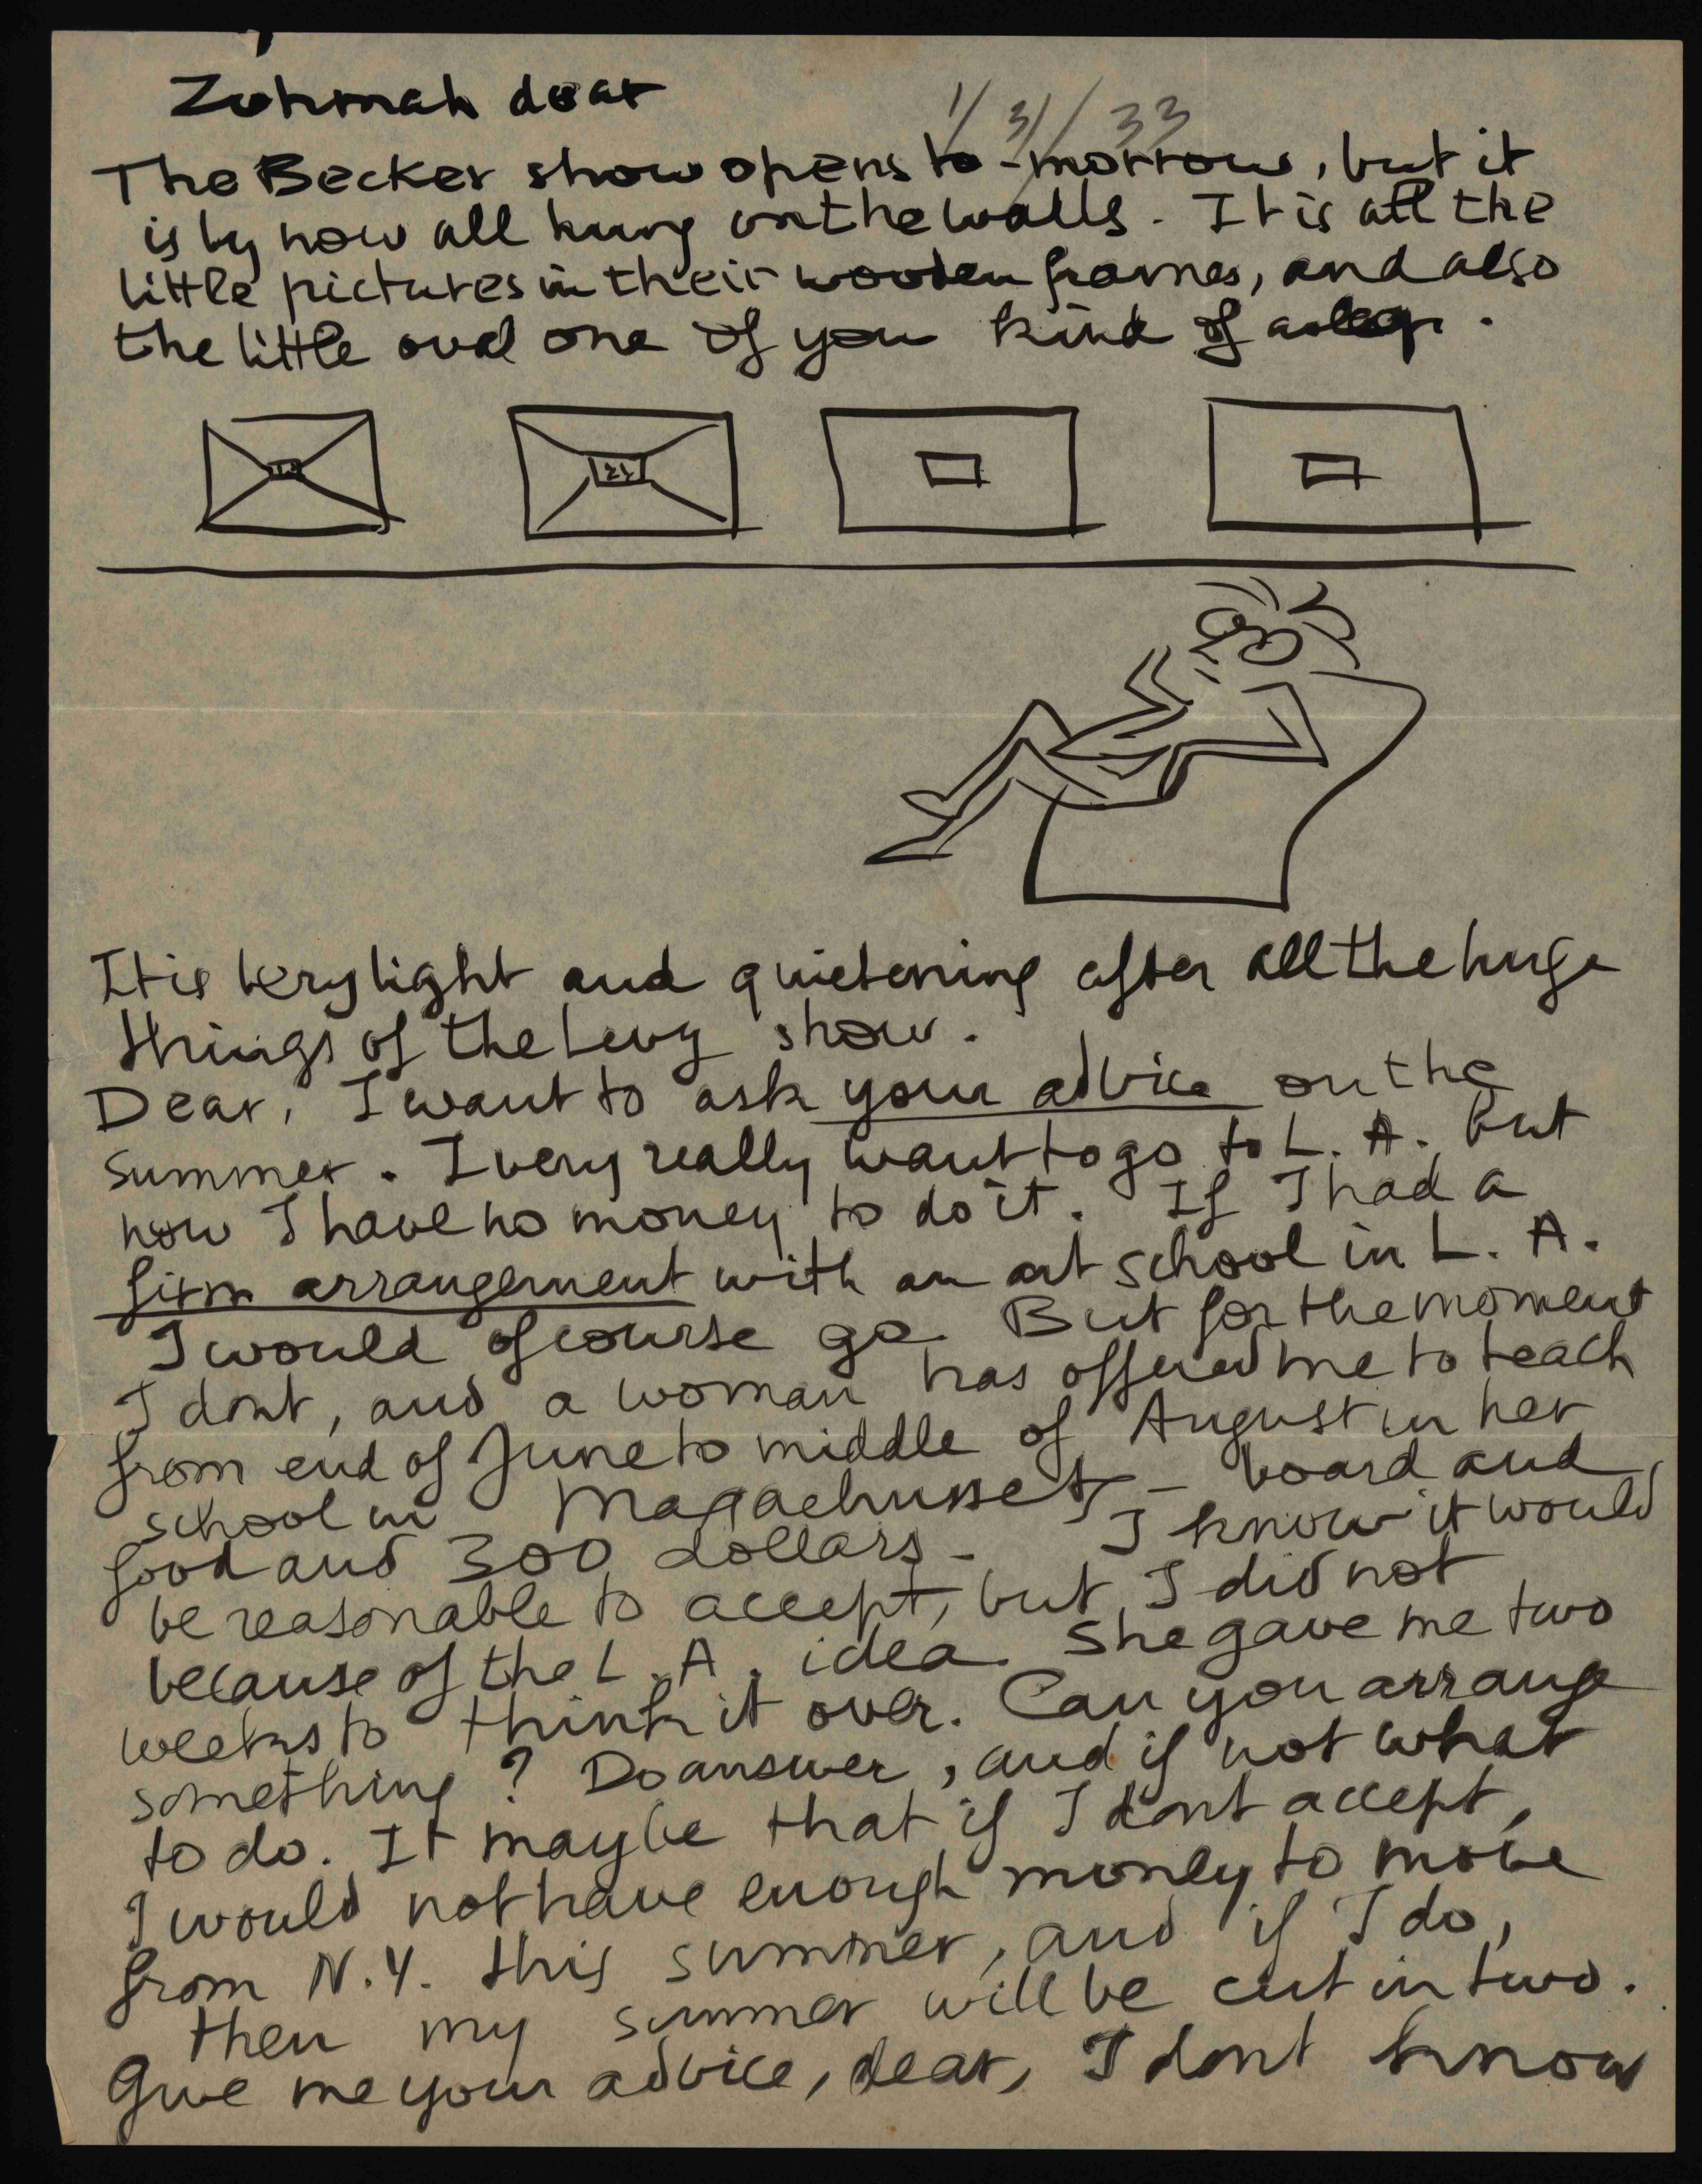 Zohmah dear
1/31/33
The Becker show opens to-morrow, but it
is by now all hung on the walls. It is all the
little pictures in their wooden frames, and also
the little oval one of you kind of asleep.
It is very light and quietening after all the huge
things of the Levy show.
Dear, I want to ask your advice on the
summer. I very really want to go to L.A. but
now I have no money to do it. If I had a
firm arrangement with an art school in L.A.
I would of course go. But for the moment
I dont, and a woman has offered me to teach
from end of June to middle of August in her
school in Massachussets - board and
food and 300 dollars - I know it would
be reasonable to accept, but I did not
because of the L.A. idea. She gave me two
weeks to think it over. Can you arrange
something? Do answer, and if not what
to do. It may be that if I dont accept,
I would not have enough money to move
from N.Y. this summer, and if I do,
then my summer will be cut in two.
Give me your advice, dear, I dont know